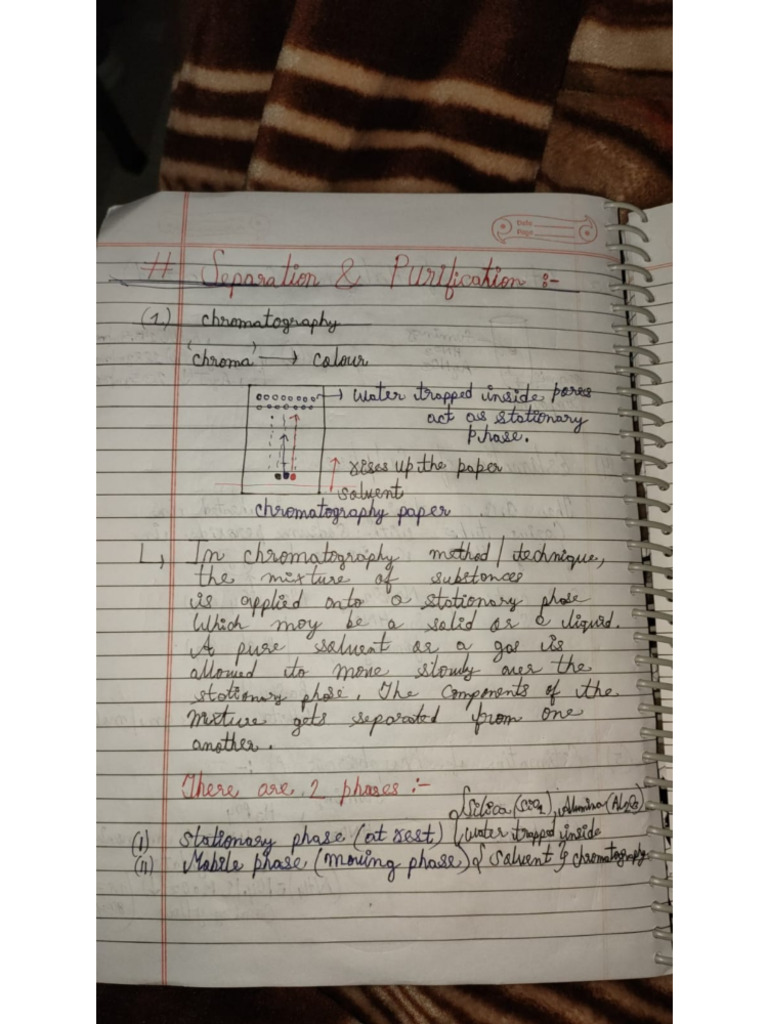 Date
Page
# Separation & Purification :-
(1.) chromatography
'chroma' → colour
→ water trapped inside pores
act as stationary
phase.
↑ rises up the paper
solvent
chromatography paper
↳ In chromatography method/technique,
the mixture of substances
is applied onto a stationary phase
which may be a solid or a liquid.
A pure solvent or a gas is
allowed to move slowly over the
stationary phase. The components of the
mixture gets separated from one
another.
There are 2 phases :-
{Silica (SiO2), Alumina (Al2O3)
(I) Stationary phase (at rest) {water trapped inside
(II) Mobile phase (moving phase) { solvent } chromatography